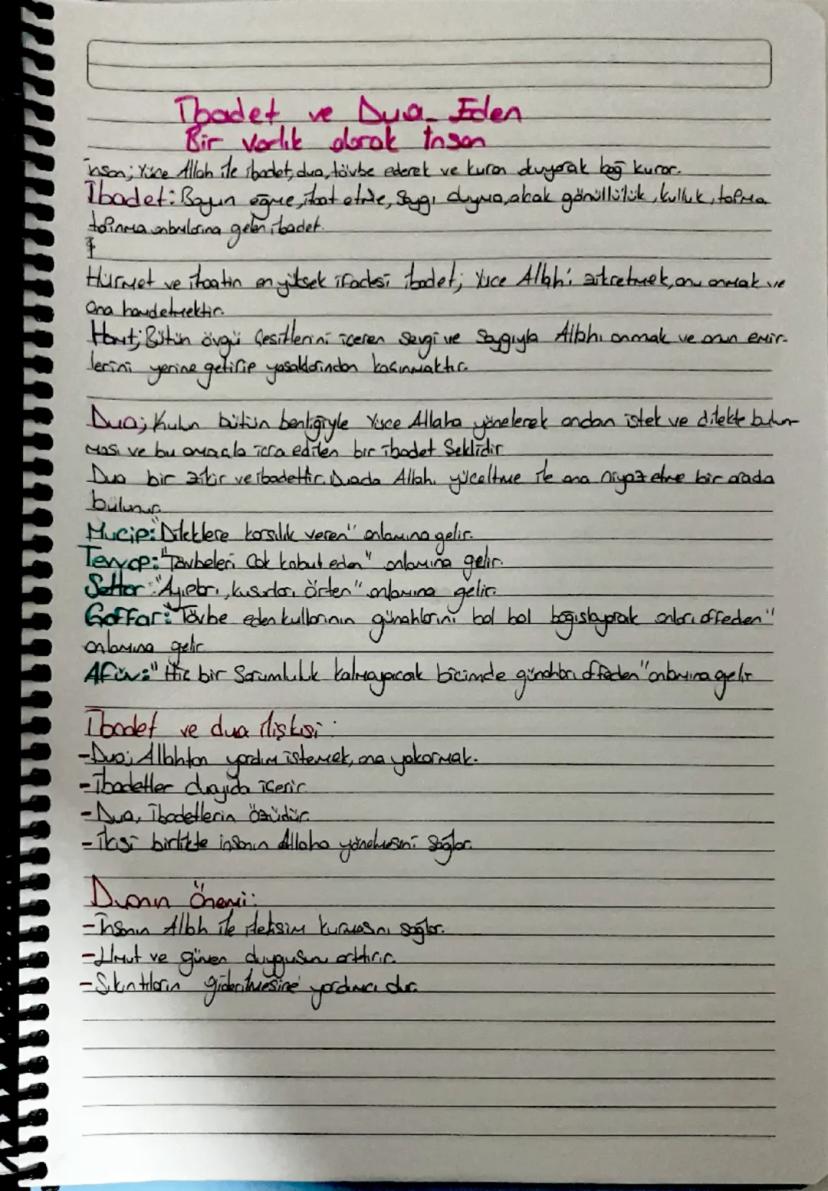 İbadet ve Dua Eden
Bir Varlık olarak İnsan
İnsan; Yüce Allah ile ibadet, dua, tövbe ederek ve kuran duyarak bağ kurar.
İbadet: Boyun eğme, itaat etme, Saygı duyma, alçak gönüllülük, kulluk, tapma
tapınma anlamlarına gelen ibadet.
Hürmet ve itaatin en yüksek ifadesi ibadet; Yüce Allah'ı zikretmek, onu anmak ve
ona hamdetmektir.
Hamt; Bütün övgü Çeşitlerini içeren Sevgi ve Saygıyla Allahı anmak ve onun emir-
lerini yerine getirip yasaklarından kaçınmaktır.
Dua; Kulun bütün benliğiyle Yüce Allaha yönelerek ondan istek ve dilekte bulun-
ması ve bu amaçla icra edilen bir ibadet Şeklidir
Dua bir zikir ve ibadettir. Duada Allahı yüceltme ile ona niyaz etme bir arada
bulunur.
Mucip: "Dileklere karşılık veren" anlamına gelir.
Tevvap: "Tövbeleri Çok kabul eden" anlamına gelir.
Settar: "Ayıpları, kusurları örten" anlamına gelir.
Gaffar: "Tövbe eden kullarının günahlarını bol bol bağışlayarak onları affeden"
anlamına gelir
Afüv: "Hiç bir Sorumluluk kalmayacak biçimde günahları affeden" anlamına gelir
İbadet ve dua ilişkisi:
-Dua; Allahtan yardım istemek, ona yakarmak.
-İbadetler duayıda içerir
-Dua, İbadetlerin özüdür
-İkisi birlikte insanın Allaha yönelmesini Sağlar.
Duanın Önemi:
-İnsanın Allah ile iletişim kurmasını sağlar.
-Umut ve güven duygusunu arttırır.
-Sıkıntıların giderilmesine yardımcı dır.